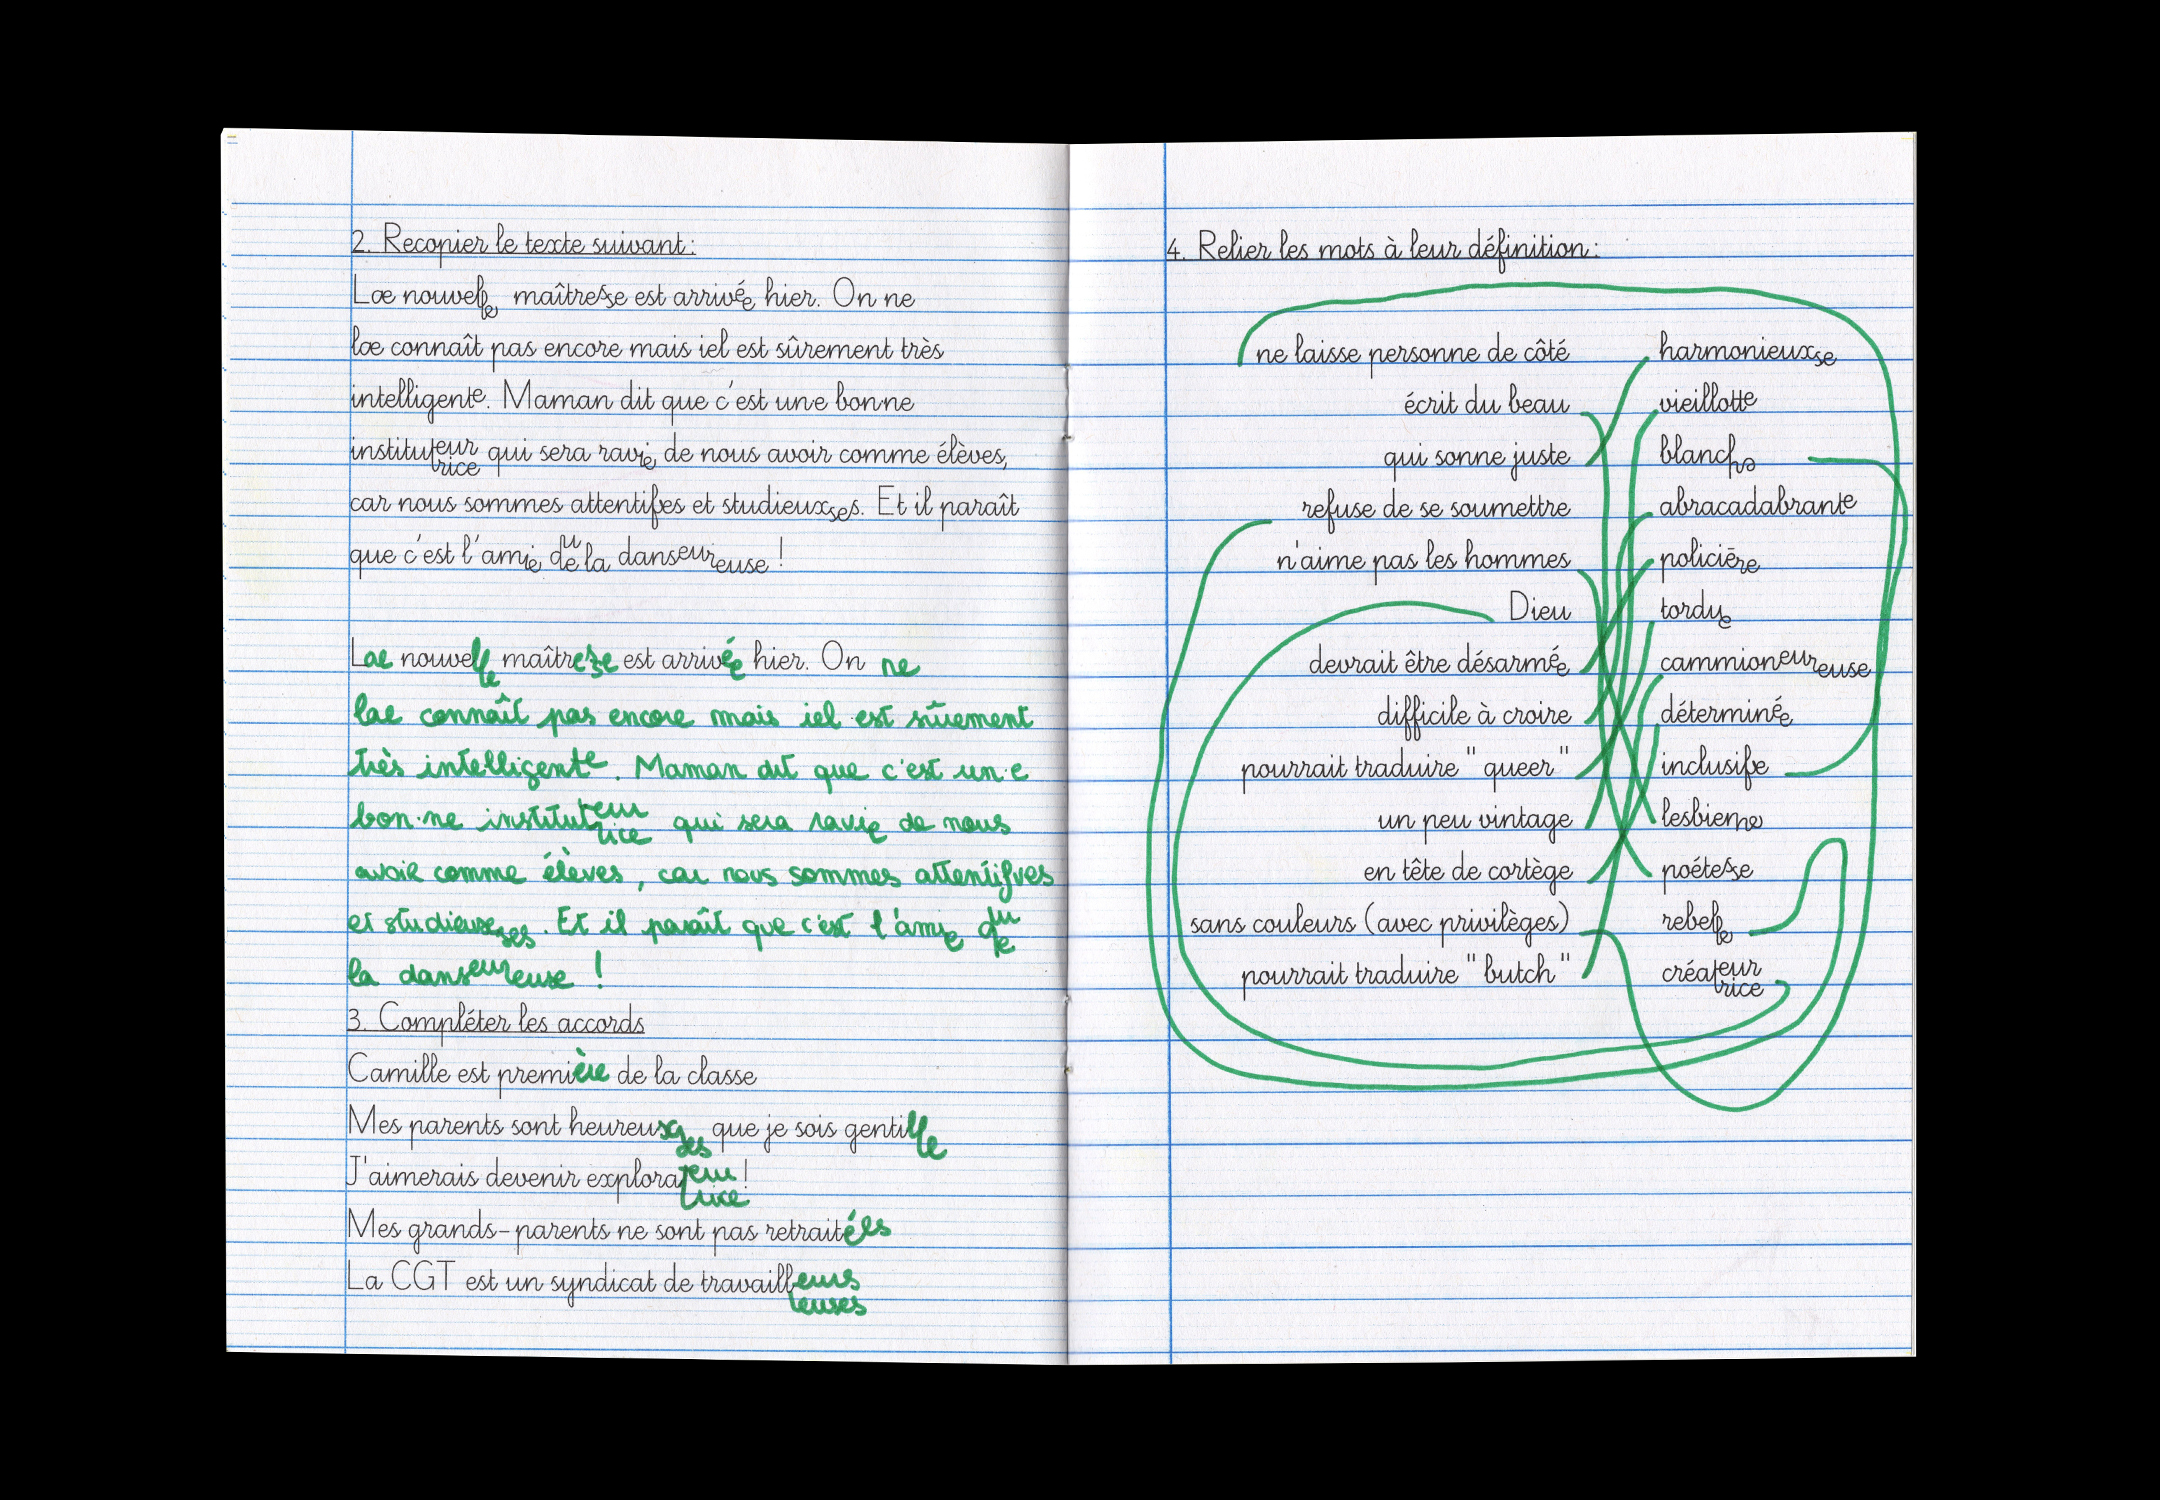 2. Recopier le texte suivant :
Læ nouvelle maîtresse est arrivée hier. On ne
læ connaît pas encore mais iel est sûrement très
intelligente. Maman dit que c'est un·e bon·ne
instituteurrice qui sera ravie de nous avoir comme élèves,
car nous sommes attentifves et studieuxses. Et il paraît
que c'est l'amie dude la danseureuse !
Lae nouvelle maîtresse est arrivée hier. On ne
lae connaît pas encore mais iel est sûrement
très intelligente. Maman dit que c'est un·e
bon·ne instituteurrice qui sera ravie de nous
avoir comme élèves, car nous sommes attentifves
et studieuxses. Et il paraît que c'est l'amie dude
la danseureuse !
3. Compléter les accords
Camille est première de la classe
Mes parents sont heureuxses que je sois gentille
J'aimerais devenir explorateurtrice !
Mes grands-parents ne sont pas retraitéés
La CGT est un syndicat de travailleurseuses
4. Relier les mots à leur définition :
ne laisse personne de côté harmonieuxse
écrit du beau vieillotte
qui sonne juste blanche
refuse de se soumettre abracadabrante
n'aime pas les hommes policière
Dieu tordue
devrait être désarmée cammioneureuse
difficile à croire déterminée
pourrait traduire "queer" inclusifve
un peu vintage lesbienne
en tête de cortège poétesse
sans couleurs (avec privilèges) rebelle
pourrait traduire "butch" créateurrice